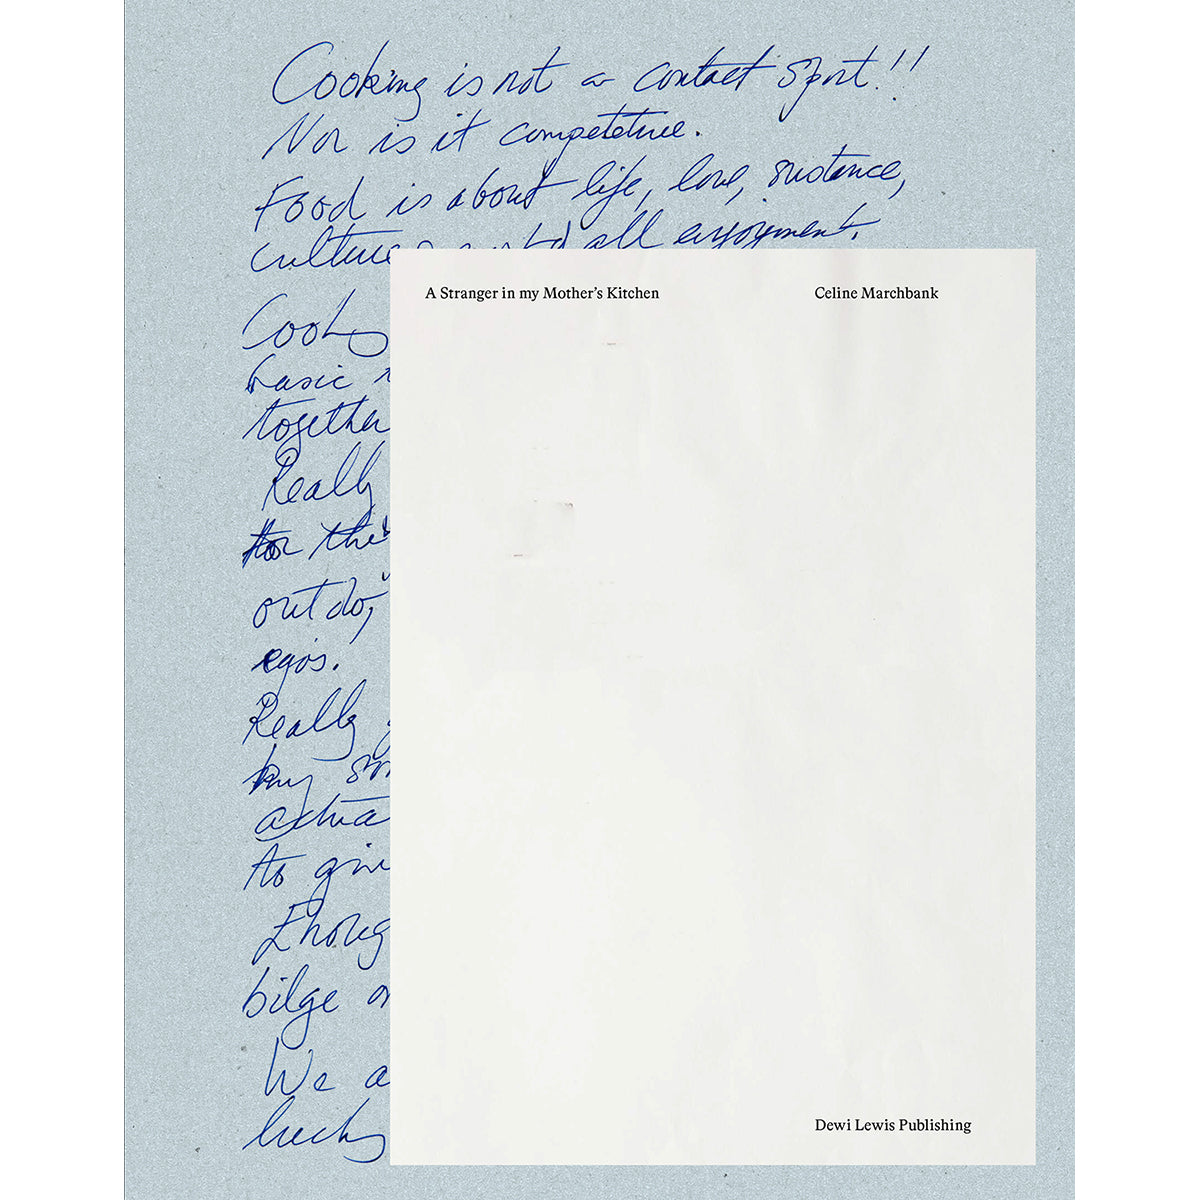 Cooking is not a contact sport!!
Nor is it competetive.
Food is about life, love, sustance,
culture all enjoyment.
Cooking
basic
together
Really
for the
outdo,
egos.
Really
by
actua
to give
Enoug
bilge or
We a
lucky
A Stranger in my Mother's Kitchen
Celine Marchbank
Dewi Lewis Publishing